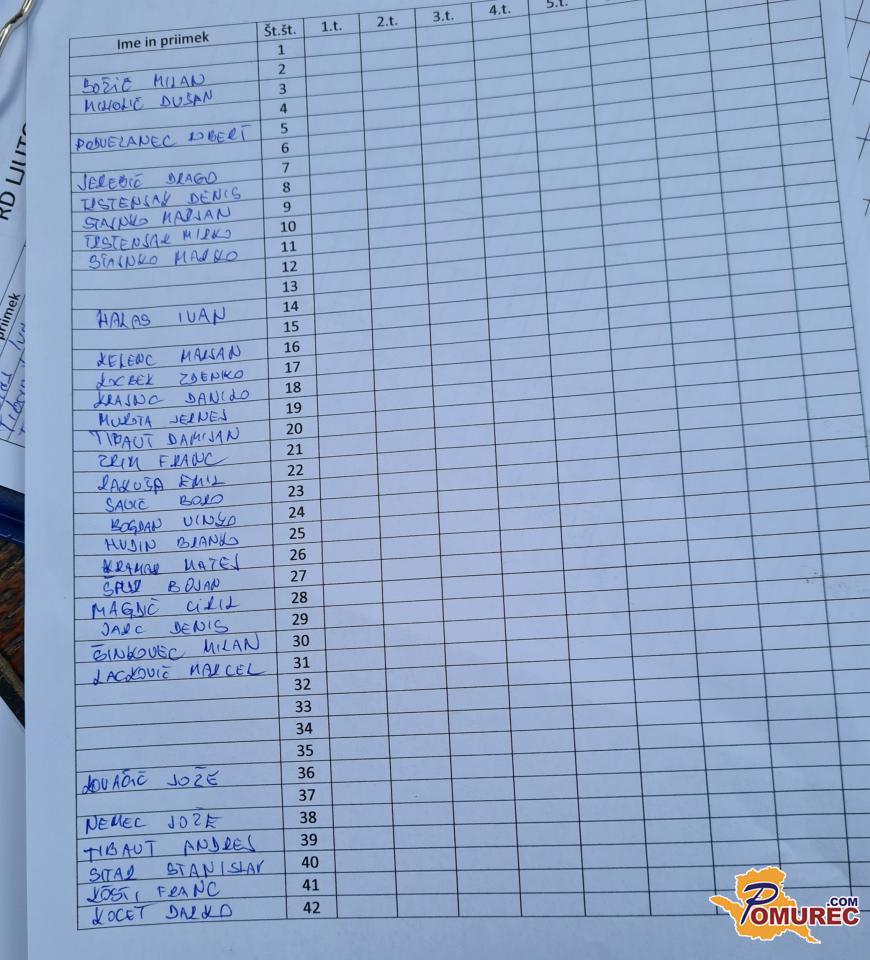 RD LJUTO
priimek
Ime in priimek Št.št. 1.t. 2.t. 3.t. 4.t. 5.t.
1
BOŽIČ MILAN 2
MIHOLIČ DUŠAN 3
4
ROBERT 5
6
JEREBIČ DRAGO 7
TRSTENJAK DENIS 8
STAJNKO MARJAN 9
TRSTENJAK MIRKO 10
STAJNKO MARKO 11
12
13
HALAS IVAN 14
15
KELENC MARJAN 16
KOCBEK ZDENKO 17
KRAJNC DANILO 18
JERNEJ 19
TIBAUT DAMIJAN 20
ZRIM FRANC 21
RAKUŠA EMIL 22
SAVIČ BORO 23
BOGDAN VINKO 24
HUDIN BRANKO 25
KRAMAR MATEJ 26
ŠPUR BOJAN 27
MAGDIČ CIRIL 28
JARC DENIS 29
ŠINKOVEC MILAN 30
LACKOVIČ MARCEL 31
32
33
34
35
KOVAČIČ JOŽE 36
37
NEMEC JOŽE 38
TIBAUT ANDREJ 39
SITAR STANISLAV 40
FRANC 41
KOCET DARKO 42
POMUREC.COM